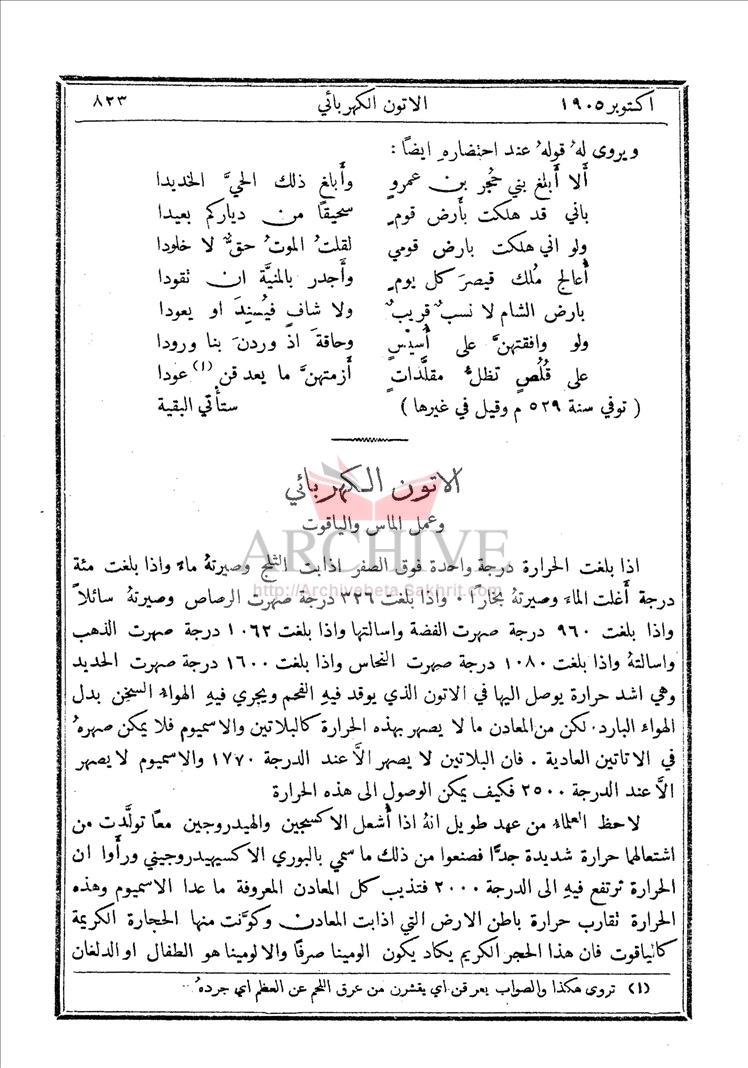 اكتوبر ١٩٠٥ الاتون الكهربائي ٨٢٣
ويروى لهُ قولهُ عند احتضاره ايضاً :
أَلا أَبلغ بني حُجر بن عمروٍ وأَبلغ ذلك الحيَّ الحديدا
باني قد هلكت بأَرض قومٍ سحيقًا من دياركم بعيدا
ولو اني هلكت بارض قومي لقلتُ الموتُ حقٌّ لا خلودا
أُعالج مُلك قيصرَ كل يومٍ وأَجدر بالمنيَّة ان تقودا
بارض الشام لا نسبٌ قريبٌ ولا شافٍ فيُسنِدَ او يعودا
ولو وافقتهنَّ على أُسَيْسٍ وحاقةَ اذ وردنَ بنا ورودا
على قُلُصٍ تظلُّ مقلَّداتٍ أَزمتهنَّ ما يعدقن (١) عودا
( توفي سنة ٥٢٩ م وقيل في غيرها ) ستأتي البقية
الاتون الكهربائي
وعمل الماس والياقوت
ARCHIVE
http://Archivebeta.Sakhrit.com
اذا بلغت الحرارة درجة واحدة فوق الصفر اذابت الثلج وصيرتهُ ماءً واذا بلغت مئة
درجة أَغلت الماءَ وصيرتهُ بخارًا ٠ واذا بلغت ٣٢٦ درجة صهرت الرصاص وصيرتهُ سائلاً
واذا بلغت ٩٦٠ درجة صهرت الفضة واسالتها واذا بلغت ١٠٦٢ درجة صهرت الذهب
واسالتهُ واذا بلغت ١٠٨٠ درجة صهرت النحاس واذا بلغت ١٦٠٠ درجة صهرت الحديد
وهي اشد حرارة يوصل اليها في الاتون الذي يوقد فيهِ الفحم ويجري فيهِ الهواءُ السخن بدل
الهواء البارد. لكن من المعادن ما لا يصهر بهذه الحرارة كالبلاتين والاسميوم فلا يمكن صهرهُ
في الاتاتين العادية . فان البلاتين لا يصهر الاَّ عند الدرجة ١٧٧٠ والاسميوم لا يصهر
الاَّ عند الدرجة ٢٥٠٠ فكيف يمكن الوصول الى هذه الحرارة
لاحظ العلماءُ من عهد طويل انهُ اذا أُشعل الاكسجين والهيدروجين معًا تولَّدت من
اشتعالهما حرارة شديدة جدًّا فصنعوا من ذلك ما سمي بالبوري الاكسيهيدروجيني ورأَوا ان
الحرارة ترتفع فيهِ الى الدرجة ٢٠٠٠ فتذيب كل المعادن المعروفة ما عدا الاسميوم وهذه
الحرارة تقارب حرارة باطن الارض التي اذابت المعادن وكوَّنت منها الحجارة الكريمة
كالياقوت فان هذا الحجر الكريم يكاد يكون الومينا صرفًا والالومينا هو الطفال او الدلغان
(١) تروى هكذا والصواب يعرقن اي يقشرن من عرق اللحم عن العظم اي جردهُ